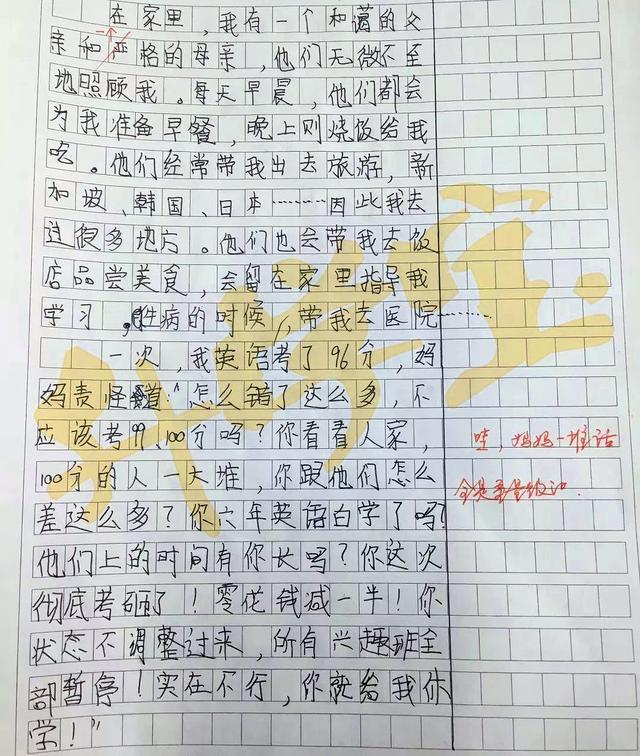 在家里，我有一个和蔼的父
亲和严格的母亲，他们无微不至
地照顾我。每天早晨，他们都会
为我准备早餐，晚上则烧饭给我
吃。他们经常带我出去旅游，新
加坡、韩国、日本………因此我去
过很多地方。他们也会带我去饭
店品尝美食，会留在家里指导我
学习，生病的时候，带我去医院………
一次，我英语考了96分，妈
妈责怪道“怎么错了这么多，不
应该考99、100分吗？你看看人家，
100分的人一大堆，你跟他们怎么
差这么多？你六年英语白学了吗？
他们上的时间有你长吗？你这次
彻底考砸了！零花钱减一半！你
状态不调整过来，所有兴趣班全
部暂停！实在不行，你就给我休
学！”
哇，妈妈一堆话
全是
升学